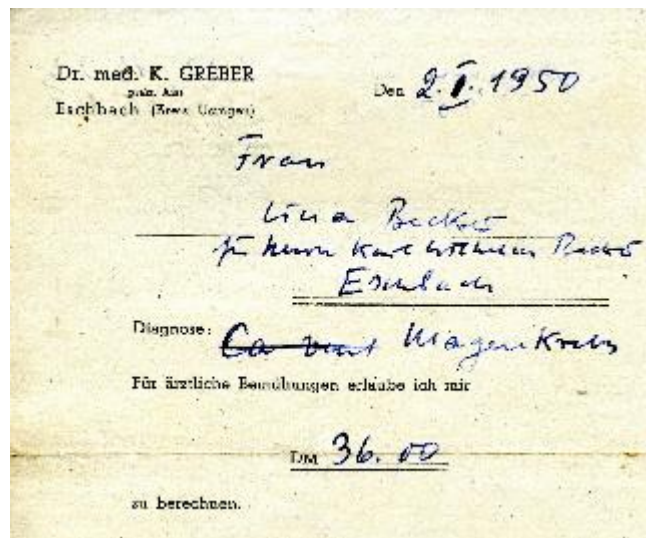 Dr. med. K. GREBER
prakt. Arzt
Eschbach (Kreis Usingen)
Den 2. I. 1950
Frau
Lina Becker
für Herrn Karl Wilhelm Becker
Eschbach
Diagnose: Ca vent Magenkrebs
Für ärztliche Bemühungen erlaube ich mir
DM 36.00
zu berechnen.